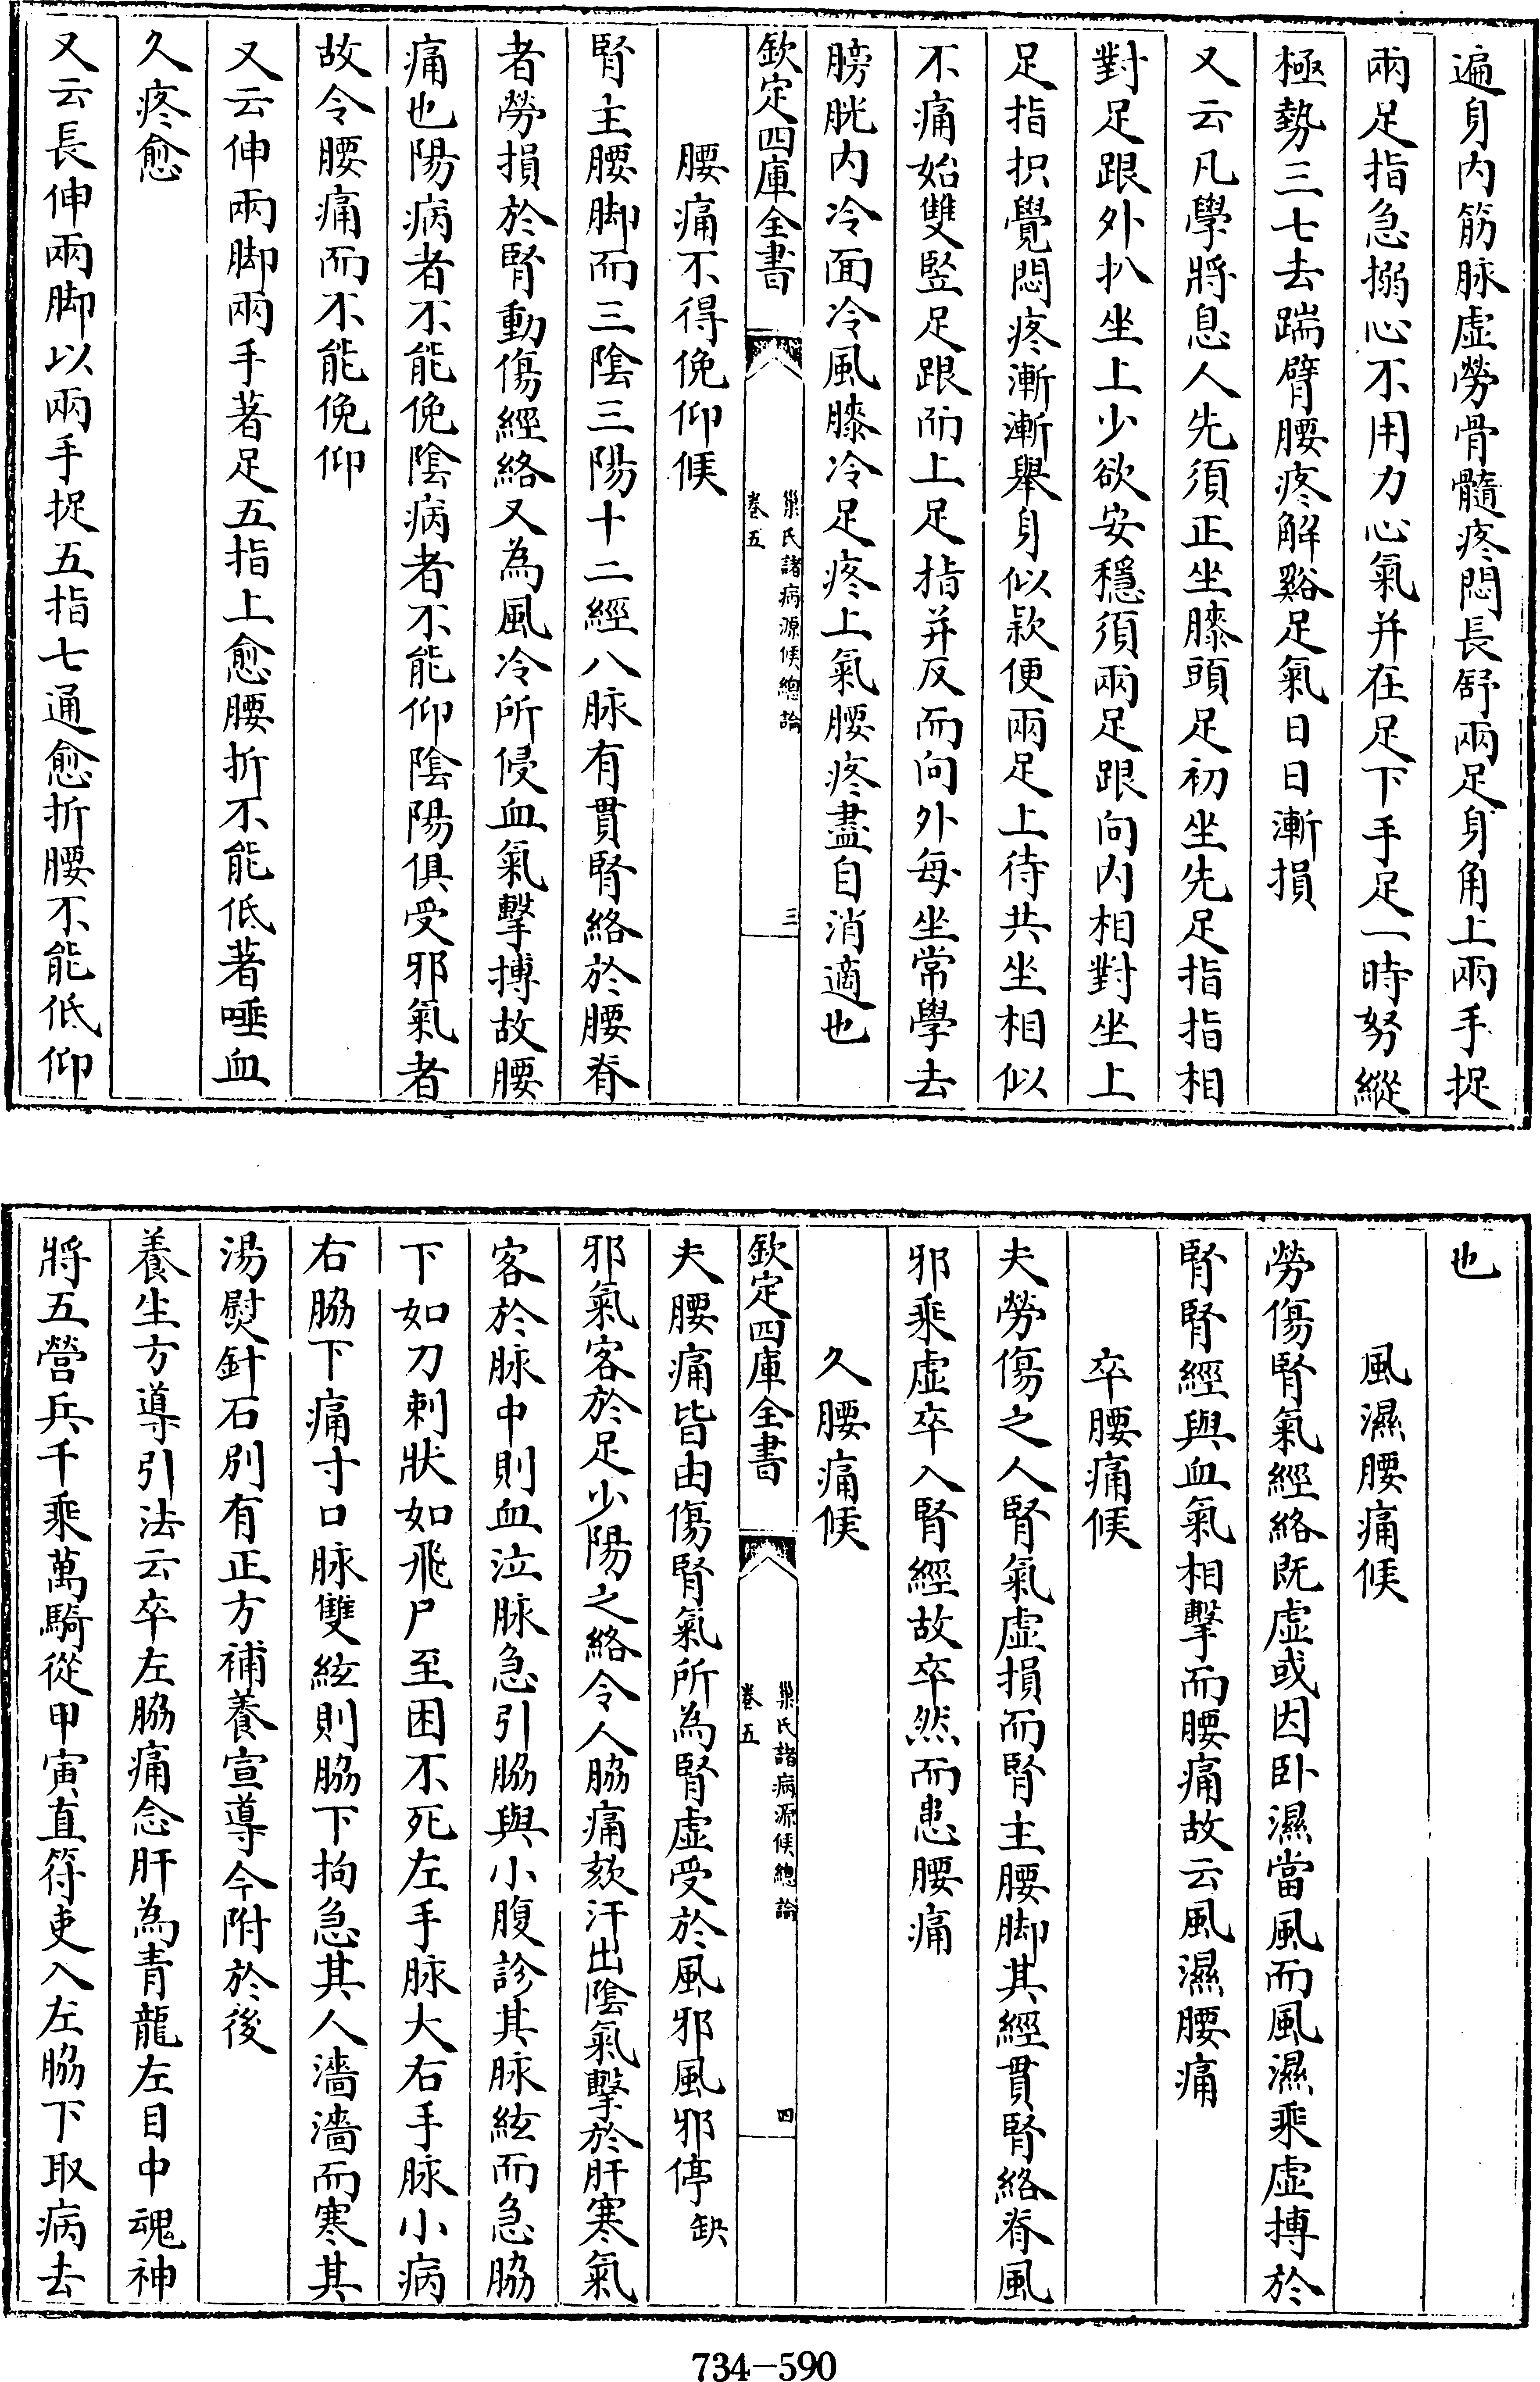 遍身内筋脉虚勞骨髓疼悶長舒兩足身角上兩手捉
兩足指急搦心不用力心氣并在足下手足一時努縱
極勢三七去踹臂腰疼解谿足氣日日漸損
又云凡學將息人先須正坐膝頭足初坐先足指指相
對足跟外扒坐上少欲安穩須兩足跟向内相對坐上
足指抧覺悶疼漸漸舉身似欵便兩足上待共坐相似
不痛始雙竪足跟而上足指并反而向外每坐常學去
膀胱内冷面冷風膝冷足疼上氣腰疼盡自消適也
欽定四庫全書
巢氏諸病源候總論
卷五
三
腰痛不得俛仰候
腎主腰脚而三陰三陽十二經八脉有貫腎絡於腰脊
者勞損於腎動傷經絡又為風冷所侵血氣擊搏故腰
痛也陽病者不能俛陰病者不能仰陰陽俱受邪氣者
故令腰痛而不能俛仰
又云伸兩脚兩手著足五指上愈腰折不能低著唾血
久疼愈
又云長伸兩脚以兩手捉五指七通愈折腰不能低仰
也
風濕腰痛候
勞傷腎氣經絡既虚或因卧濕當風而風濕乘虚搏於
腎腎經與血氣相擊而腰痛故云風濕腰痛
卒腰痛候
夫勞傷之人腎氣虚損而腎主腰脚其經貫腎絡脊風
邪乘虚卒入腎經故卒然而患腰痛
久腰痛候
欽定四庫全書
巢氏諸病源候總論
卷五
四
夫腰痛皆由傷腎氣所為腎虚受於風邪風邪停缺
邪氣客於足少陽之絡令人脇痛欬汗出陰氣擊於肝寒氣
客於脉中則血泣脉急引脇與小腹診其脉絃而急脇
下如刀刺狀如飛尸至困不死左手脉大右手脉小病
右脇下痛寸口脉雙絃則脇下拘急其人濇濇而寒其
湯熨針石别有正方補養宣導今附於後
養生方導引法云卒左脇痛念肝為青龍左目中魂神
將五營兵千乘萬騎從甲寅直符吏入左脇下取病去
734-590